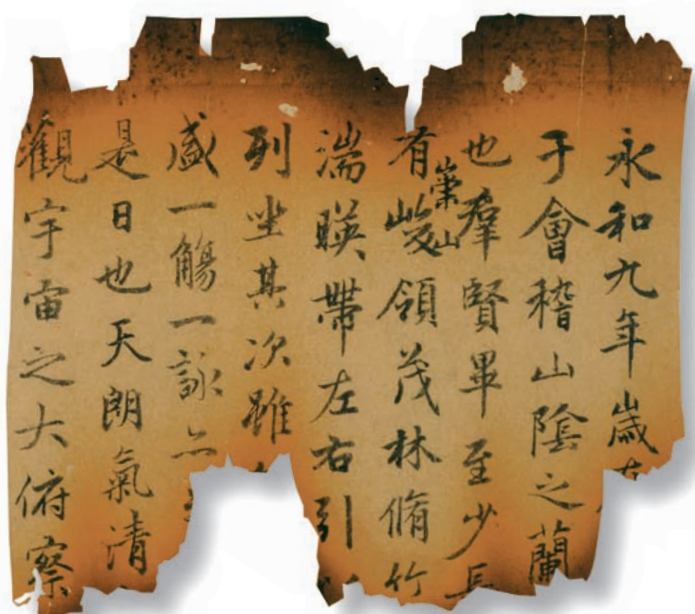 永和九年歲在
于會稽山陰之蘭
也羣賢畢至少長
有崇山峻領茂林脩竹
湍暎帶左右引
列坐其次雖
盛一觴一詠亦
是日也天朗氣清
觀宇宙之大俯察